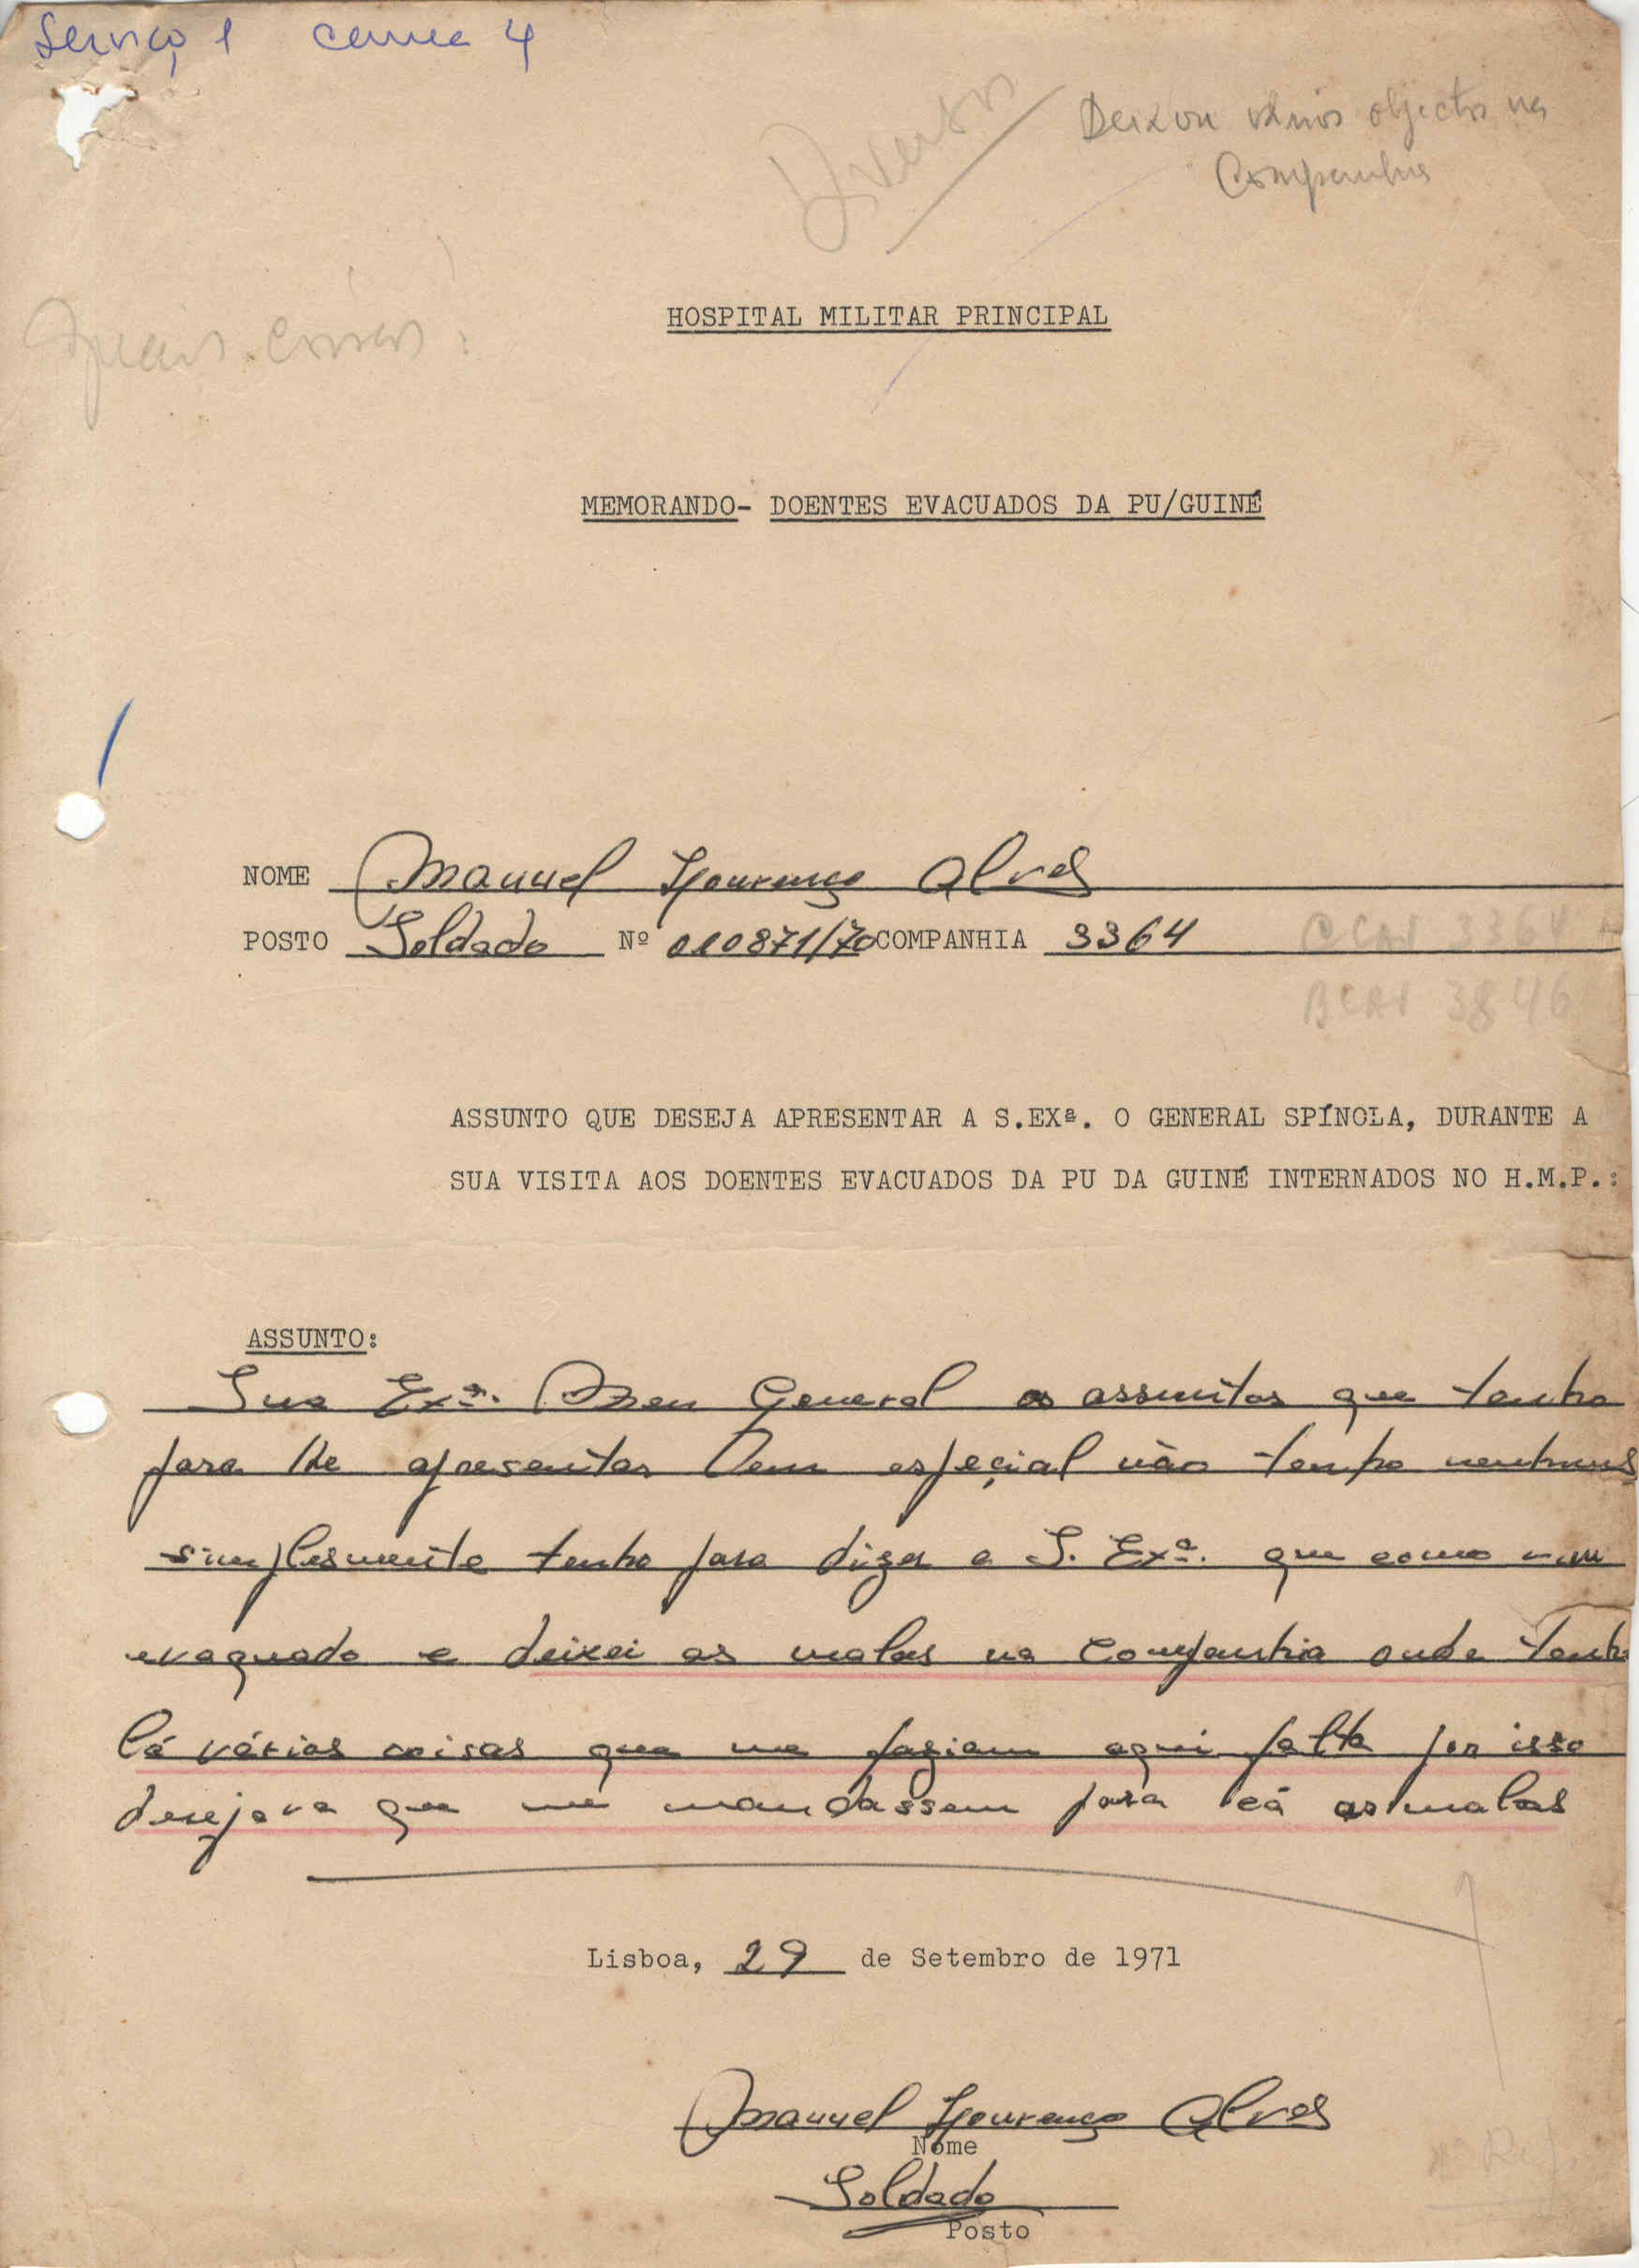 Serviço 1 cama 4
Diversos
Deixou vários objectos na
Companhia
HOSPITAL MILITAR PRINCIPAL
Quais
MEMORANDO- DOENTES EVACUADOS DA PU/GUINÉ
NOME Manuel Lourenço Alves
POSTO Soldado Nº 010871/70 COMPANHIA 3364 CCAV 3364
BCAV 3846
ASSUNTO QUE DESEJA APRESENTAR A S.EXª. O GENERAL SPÍNOLA, DURANTE A
SUA VISITA AOS DOENTES EVACUADOS DA PU DA GUINÉ INTERNADOS NO H.M.P.:
ASSUNTO:
Sua Exª. Meu General os assuntos que tenho
para lhe apresentar em especial não tenho nenhuns
simplesmente tenho para dizer a S. Exª. que como vim
evaquado e deixei as malas na Companhia onde tenho
lá várias coisas que me faziam aqui falta por isso
desejava que me mandassem para cá as malas
Lisboa, 29 de Setembro de 1971
Manuel Lourenço Alves
Nome
Soldado
Posto